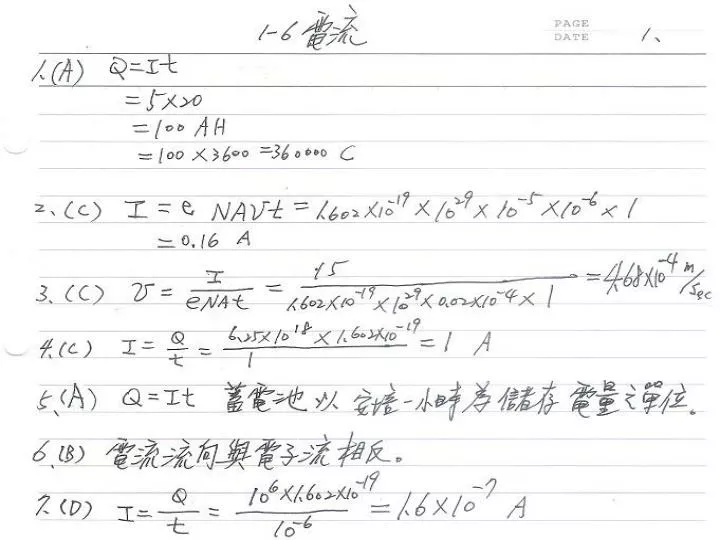 1-6 電流
PAGE
DATE
1、
1、(A) Q=It
=5×20
=100 AH
=100×3600=360000 C
2、(C) I=e NAVt=1.602×10⁻¹⁹×10²⁹×10⁻⁵×10⁻⁶×1
=0.16 A
3、(C) v=I/eNAt=15/1.602×10⁻¹⁹×10²⁹×0.02×10⁻⁴×1=4.68×10⁻⁴ m/sec
4、(C) I=Q/t=6.25×10¹⁸×1.602×10⁻¹⁹/1=1 A
5、(A) Q=It 蓄電池以安培-小時為儲存電量之單位。
6、(B) 電流流向與電子流相反。
7、(D) I=Q/t=10⁶×1.602×10⁻¹⁹/10⁻⁶=1.6×10⁻⁷ A